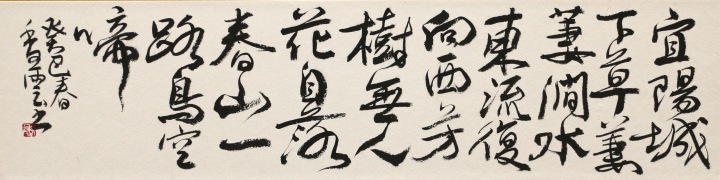 宜陽城
下草萋
萋澗水
東流復
向西芳
樹無人
花自落
春山一
路鳥空
啼
癸巳春